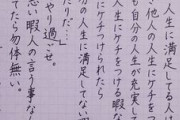 人生に満足してる人は
他人の人生にケチ
も自分の人生が充実し
人生にケチをつける暇な
ケチつけられたら
たりだ…
の人生に満足してない
やり過ごせ。
暇人の言う事な
てたら勿体無い。